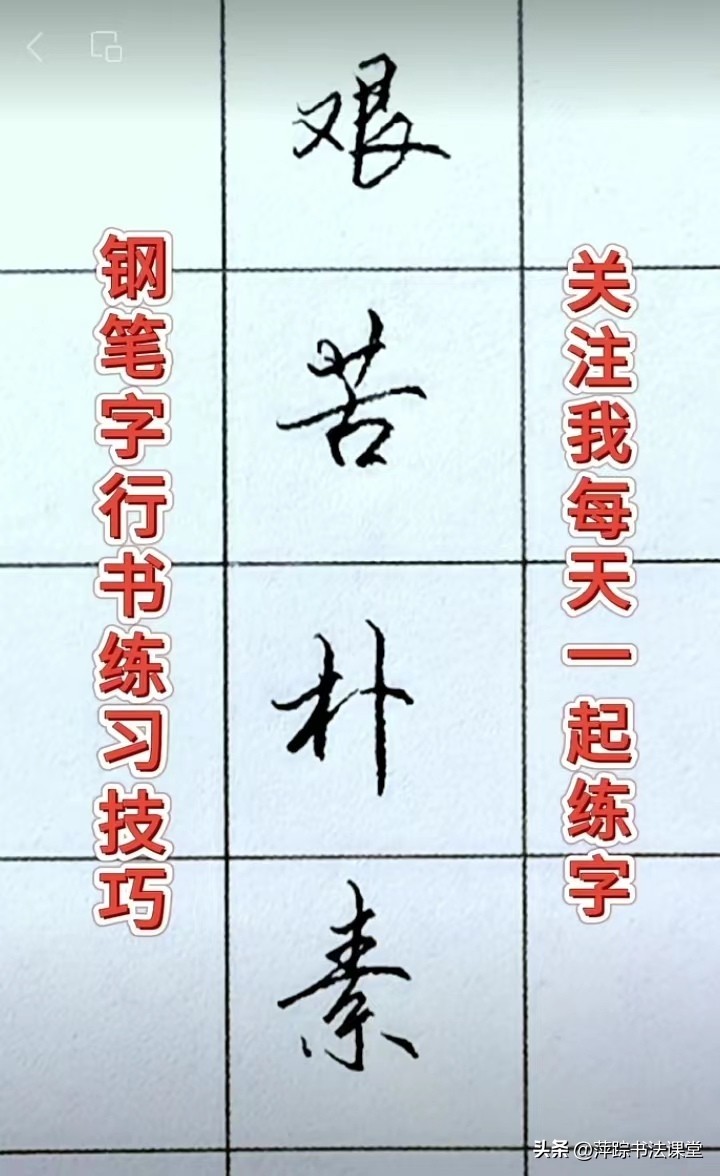 钢笔字行书练习技巧
艰苦朴素
关注我每天一起练字
头条 @萍踪书法课堂